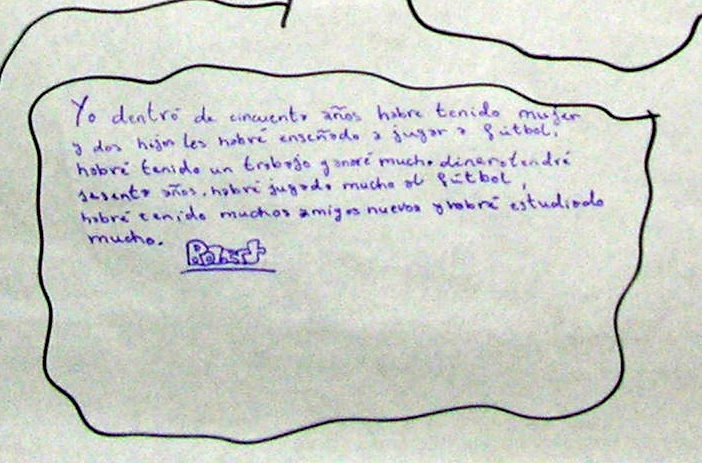 Yo dentró de cincuenta años habre tenido mujer
y dos hijos les habré enseñado a jugar a fútbol,
habré tenido un trabajo ganaré mucho dinero tendré
sesenta años, habré jugado mucho al fútbol,
habré tenido muchos amigos nuevos y habré estudiado
mucho.
Robert